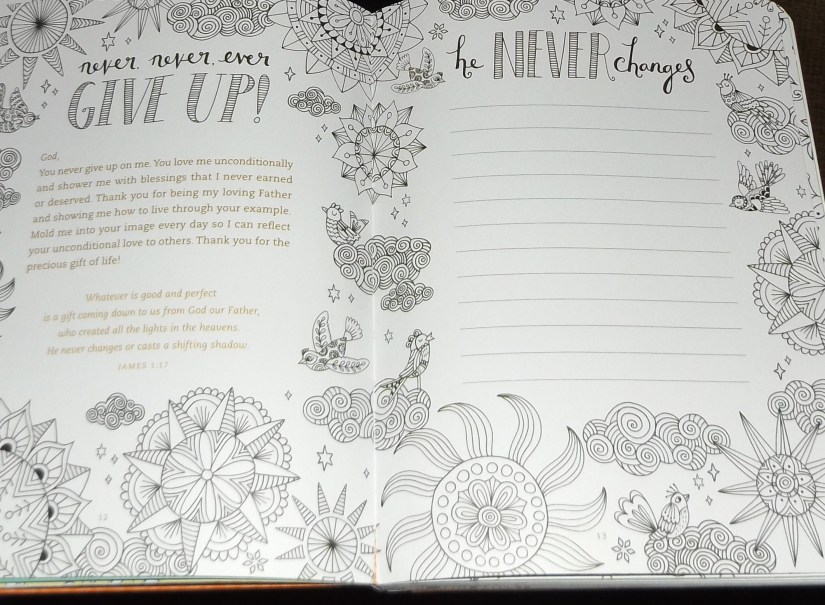 never, never, ever
GIVE UP!
God,
You never give up on me. You love me unconditionally
and shower me with blessings that I never earned
or deserved. Thank you for being my loving Father
and showing me how to live through your example.
Mold me into your image every day so I can reflect
your unconditional love to others. Thank you for the
precious gift of life!
Whatever is good and perfect
is a gift coming down to us from God our Father,
who created all the lights in the heavens.
He never changes or casts a shifting shadow.
JAMES 1:17
12
he NEVER changes
13